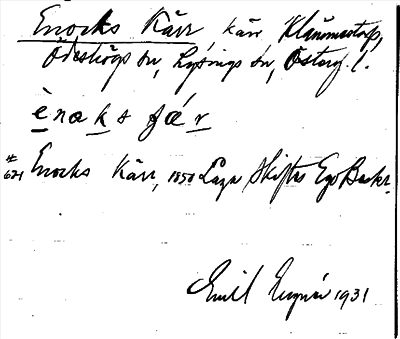 Enocks Kärr kärr, Klämmestorp,
Ödeshögs sn, Lysings hd, Österg. l.
è n œ k s ʃ ǽ r
# 621 Enocks Kärr, 1850 Laga Skiftes Ego Beskr.
Emil 1931